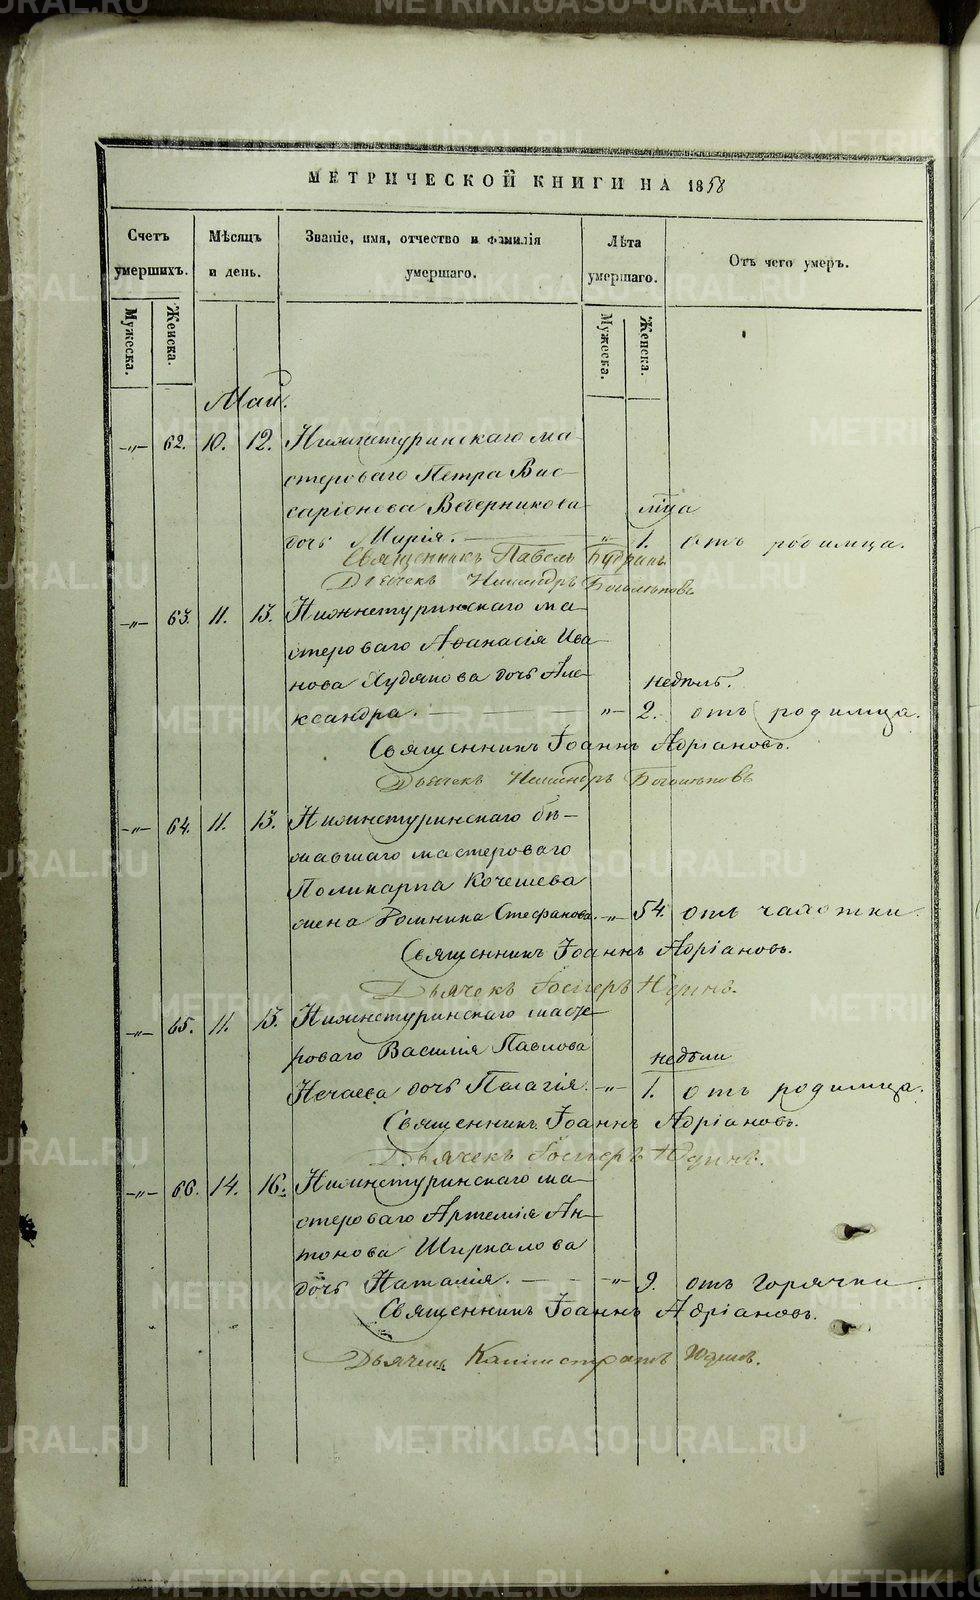 МЕТРИЧЕСКОЙ КНИГИ НА 1858
Счетъ умершихъ.
Мужеска.
Женска.
Мѣсяцъ и день.
Званіе, имя, отчество и фамилія умершаго.
Лѣта умершаго.
Мужеска.
Женска.
Отъ чего умеръ.
Май.
-„- 62. 10. 12. Нижнетуринскаго ма-
стероваго Петра Вис-
саріонова Ведерникова
дочь Марія. — „ 1. отъ родимца.
Священникъ Павелъ
Дьячекъ
-„- 63. 11. 13. Нижнетуринскаго ма-
стероваго Аѳанасія Ива-
нова Худякова дочь Але-
недѣль.
ксандра. — -„- 2. отъ родимца.
Священникъ Іоаннъ Адріановъ.
Дьячекъ
-„- 64. 11. 13. Нижнетуринскаго бѣ-
жавшаго мастероваго
Поликарпа Кочешева
жена Стефанова. -„- 54. отъ чахотки.
Священникъ Іоаннъ Адріановъ.
Дьячекъ Юдинъ.
-„- 65. 11. 13. Нижнетуринскаго масте-
роваго Василія Павлова
недѣли
Нечаева дочь Палагія. -„- 1. отъ родимца.
Священникъ Іоаннъ Адріановъ.
Дьячекъ Юдинъ.
-„- 66. 14. 16. Нижнетуринскаго ма-
стероваго Артемія Ан-
тонова Ширкалова
дочь Наталія. — -„- 9. отъ горячки.
Священникъ Іоаннъ Адріановъ.
Дьячекъ Калистратъ Юдинъ.
METRIKI.GASO-URAL.RU